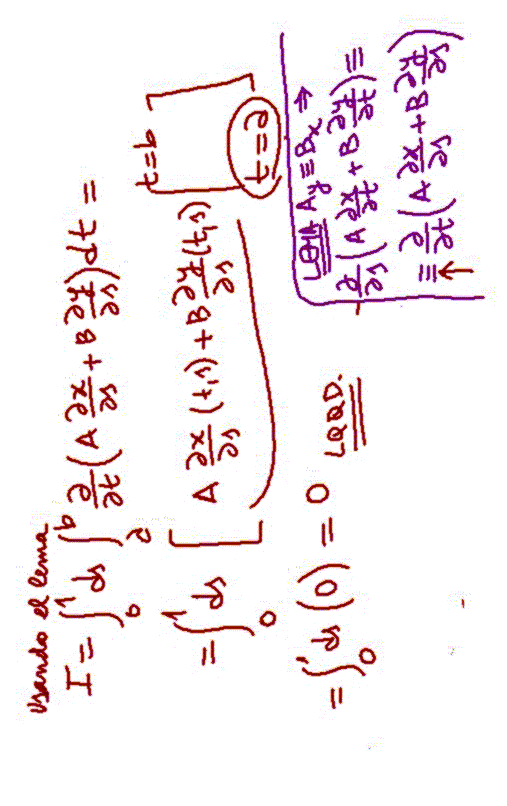 Usando el lema
I = ∫_0^1 ds ∫_a^b ∂/∂t (A ∂x/∂s + B ∂y/∂s) dt =
= ∫_0^1 ds [A ∂x/∂s (t,s) + B ∂y/∂s (t,s)]_{t=a}^{t=b}
= ∫_0^1 ds (0) = 0 LQQD.
LEMA A_y ≡ B_x ⇒
∂/∂s (A ∂x/∂t + B ∂y/∂t) ≡
≡ ∂/∂t (A ∂x/∂s + B ∂y/∂s)
↑